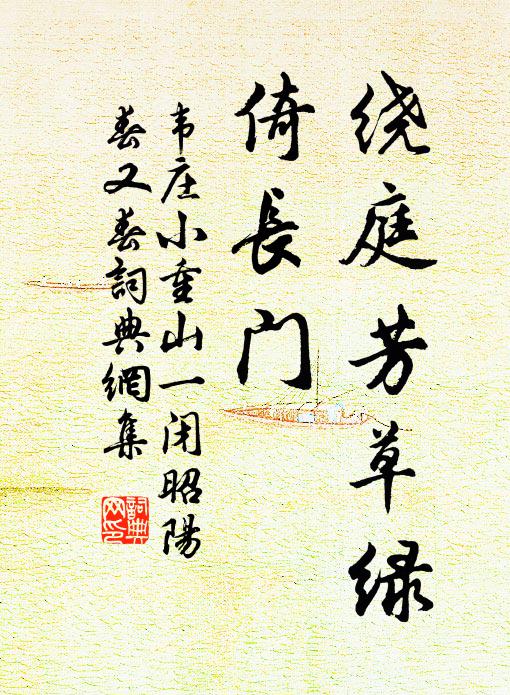 绕庭芳草绿
倚長门
韦庄小重山一闭昭陽
春又春詞典網集
詞典
网印